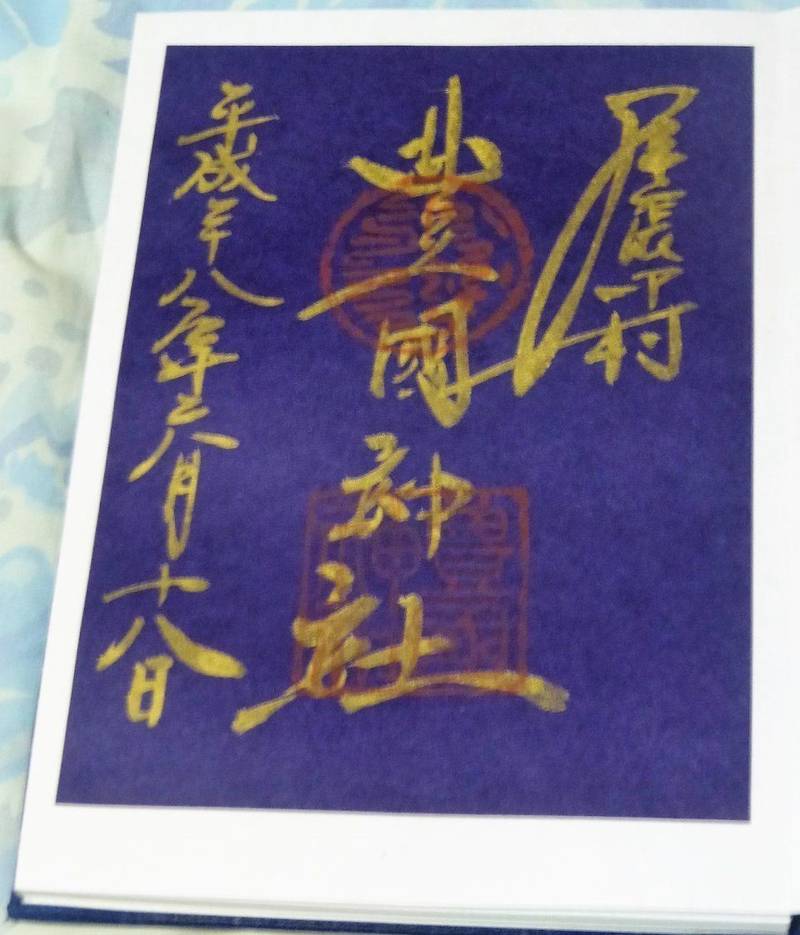 尾張中村
豊國神社
平成八年六月十八日